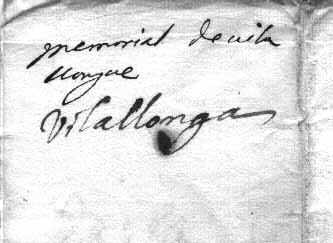 memorial de vila
llongue
Vilallonga